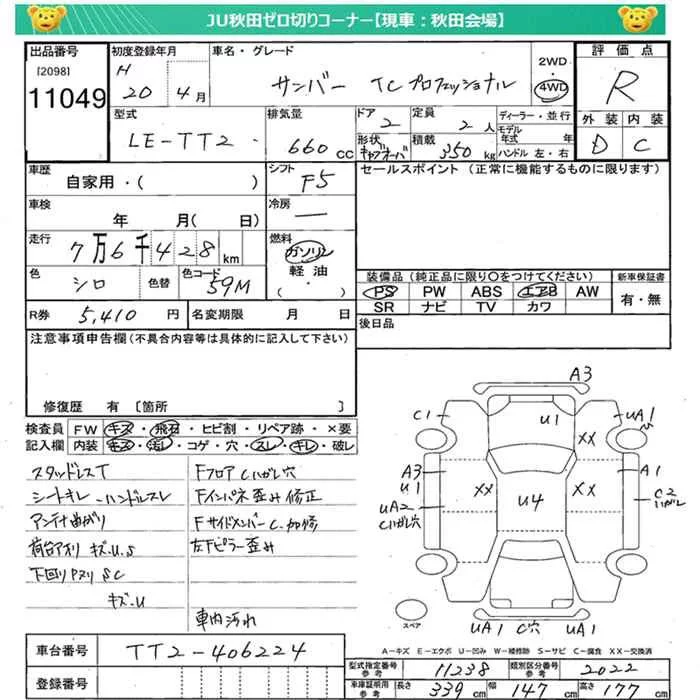 JU秋田ゼロ切りコーナー【現車：秋田会場】
出品番号 [2098] 11049
初度登録年月 H 20年 4月
車名・グレード サンバー TCプロフェッショナル
2WD 4WD
評価点 R
外装 D 内装 C
型式 LE-TT2
排気量 660 cc
ドア 2
定員 2人
形状 キャブオーバ
積載 350 kg
ディーラー・並行
モデル年式 年
ハンドル 左・右
車歴 自家用・( )
シフト F5
セールスポイント（正常に機能するものに限ります）
車検 年 月( 日)
冷房 —
走行 7万6千428km
燃料 ガソリン 軽油 ( ・ )
色 シロ 色替 色コード 59M
装備品（純正品に限り〇をつけてください）
PS PW ABS エアB AW
SR ナビ TV カワ
新車保証書 有・無
R券 5,410 円
名変期限 月 日
後日品
注意事項申告欄（不具合内容等は具体的に記入して下さい）
修復歴 有 〔箇所 〕
検査員記入欄
FW キズ・飛石・ヒビ割・リペア跡・×要
内装 キズ・汚レ・コゲ・穴・スレ・キレ・破レ
スタッドレスT
シートキレ-ハンドルスレ
アンテナ曲がり
荷台アオリ キズ.U.S
下回りPヌリ SC
キズ.U
Fフロア Cハガレ穴
Fインパネ歪み修正
FサイドメンバーC.加修
左Fピラー歪み
車内汚れ
A3
C1 U1 UA1
XX
A3 U1 A1
XX U4 XX
UA2 Cハガレ穴 C2 ハガレ
スペア
UA1 C穴 UA1
A-キズ E-エクボ U-凹み W-補修跡 S-サビ C-腐食 XX-交換済
車台番号 TT2-406224
登録番号
型式指定番号 参考 11238
類別区分番号 参考 2022
車庫証明用 参考 長さ 339 cm 幅 147 cm 高さ 177 cm